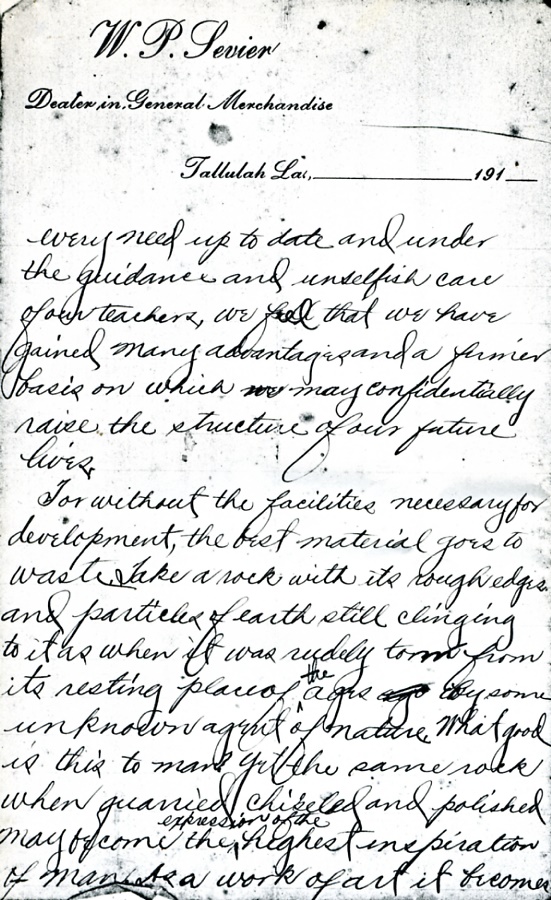 W. P. Sevier
Dealer in General Merchandise
Tallulah La., 191
every need up to date and under
the guidance and unselfish care
of our teachers, we feel that we have
gained many advantages and a firmer
basis on which we may confidentially
raise the structure of our future
lives.
For without the facilities necessary for
development, the best material goes to
waste. Take a rock with its rough edges
and particles of earth still clinging
to it as when it was rudely torn from
its resting place of the ages by some
unknown agent of nature. What good
is this to man? Yet the same rock
when quarried, chiseled and polished
may become the expression of the highest inspiration
of man. As a work of art it becomes